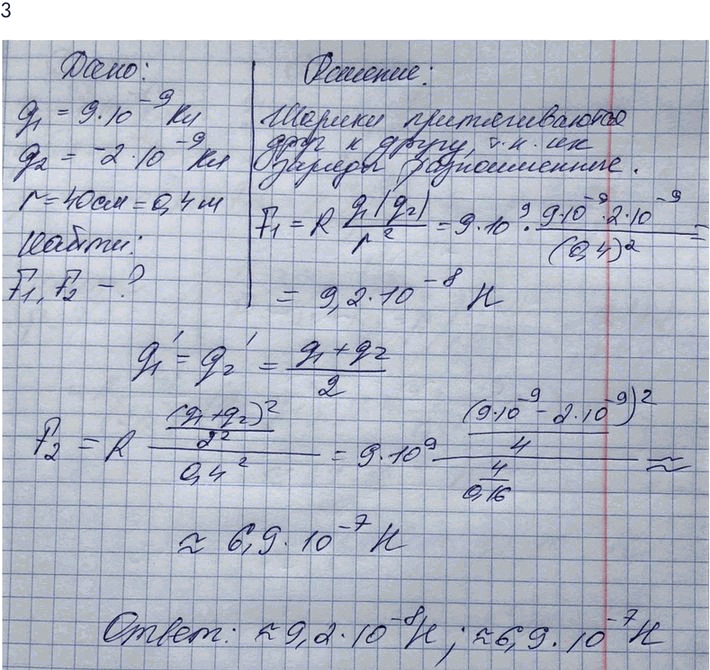 3
Дано:
q₁ = 9·10⁻⁹ Кл
q₂ = -2·10⁻⁹ Кл
r = 40 см = 0,4 м
Найти:
F₁, F₂ - ?
Решение:
Шарики притягиваются
друг к другу, т.к. их
заряды разноименные.
F₁ = k q₁|q₂| / r² = 9·10⁹ · 9·10⁻⁹·2·10⁻⁹ / (0,4)² =
= 9,2·10⁻⁸ Н
q₁' = q₂' = (q₁ + q₂) / 2
F₂ = k ((q₁+q₂)² / 2²) / 0,4² = 9·10⁹ ((9·10⁻⁹ - 2·10⁻⁹)² / 4) / (4 / 0,16) ≈
≈ 6,9·10⁻⁷ Н
Ответ: ≈ 9,2·10⁻⁸ Н; ≈ 6,9·10⁻⁷ Н